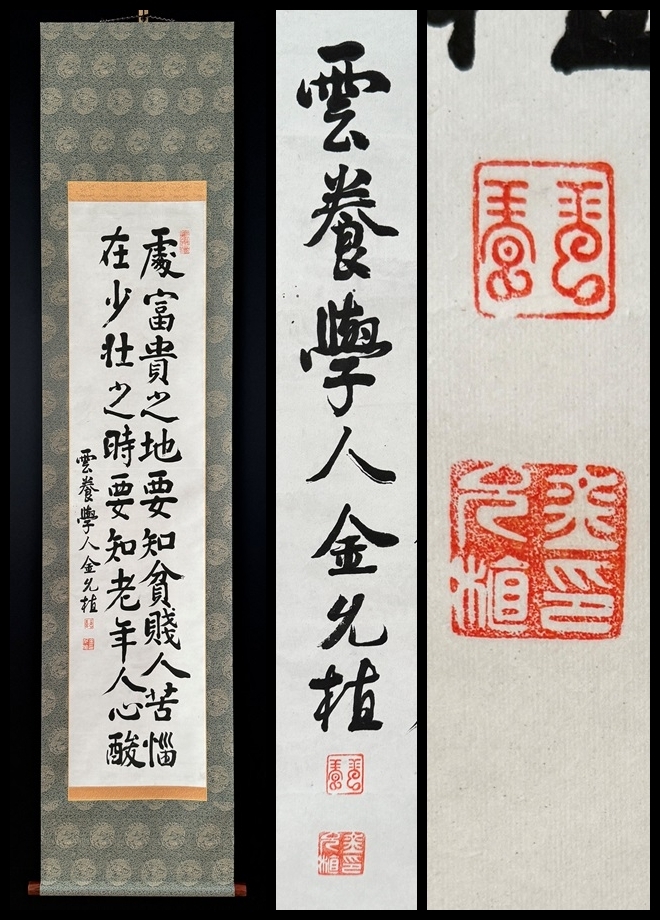 處富貴之地要知貧賤人苦惱
在少壯之時要知老年人心酸
雲養學人金允植
雲養學人金允植
雲養
金印允植